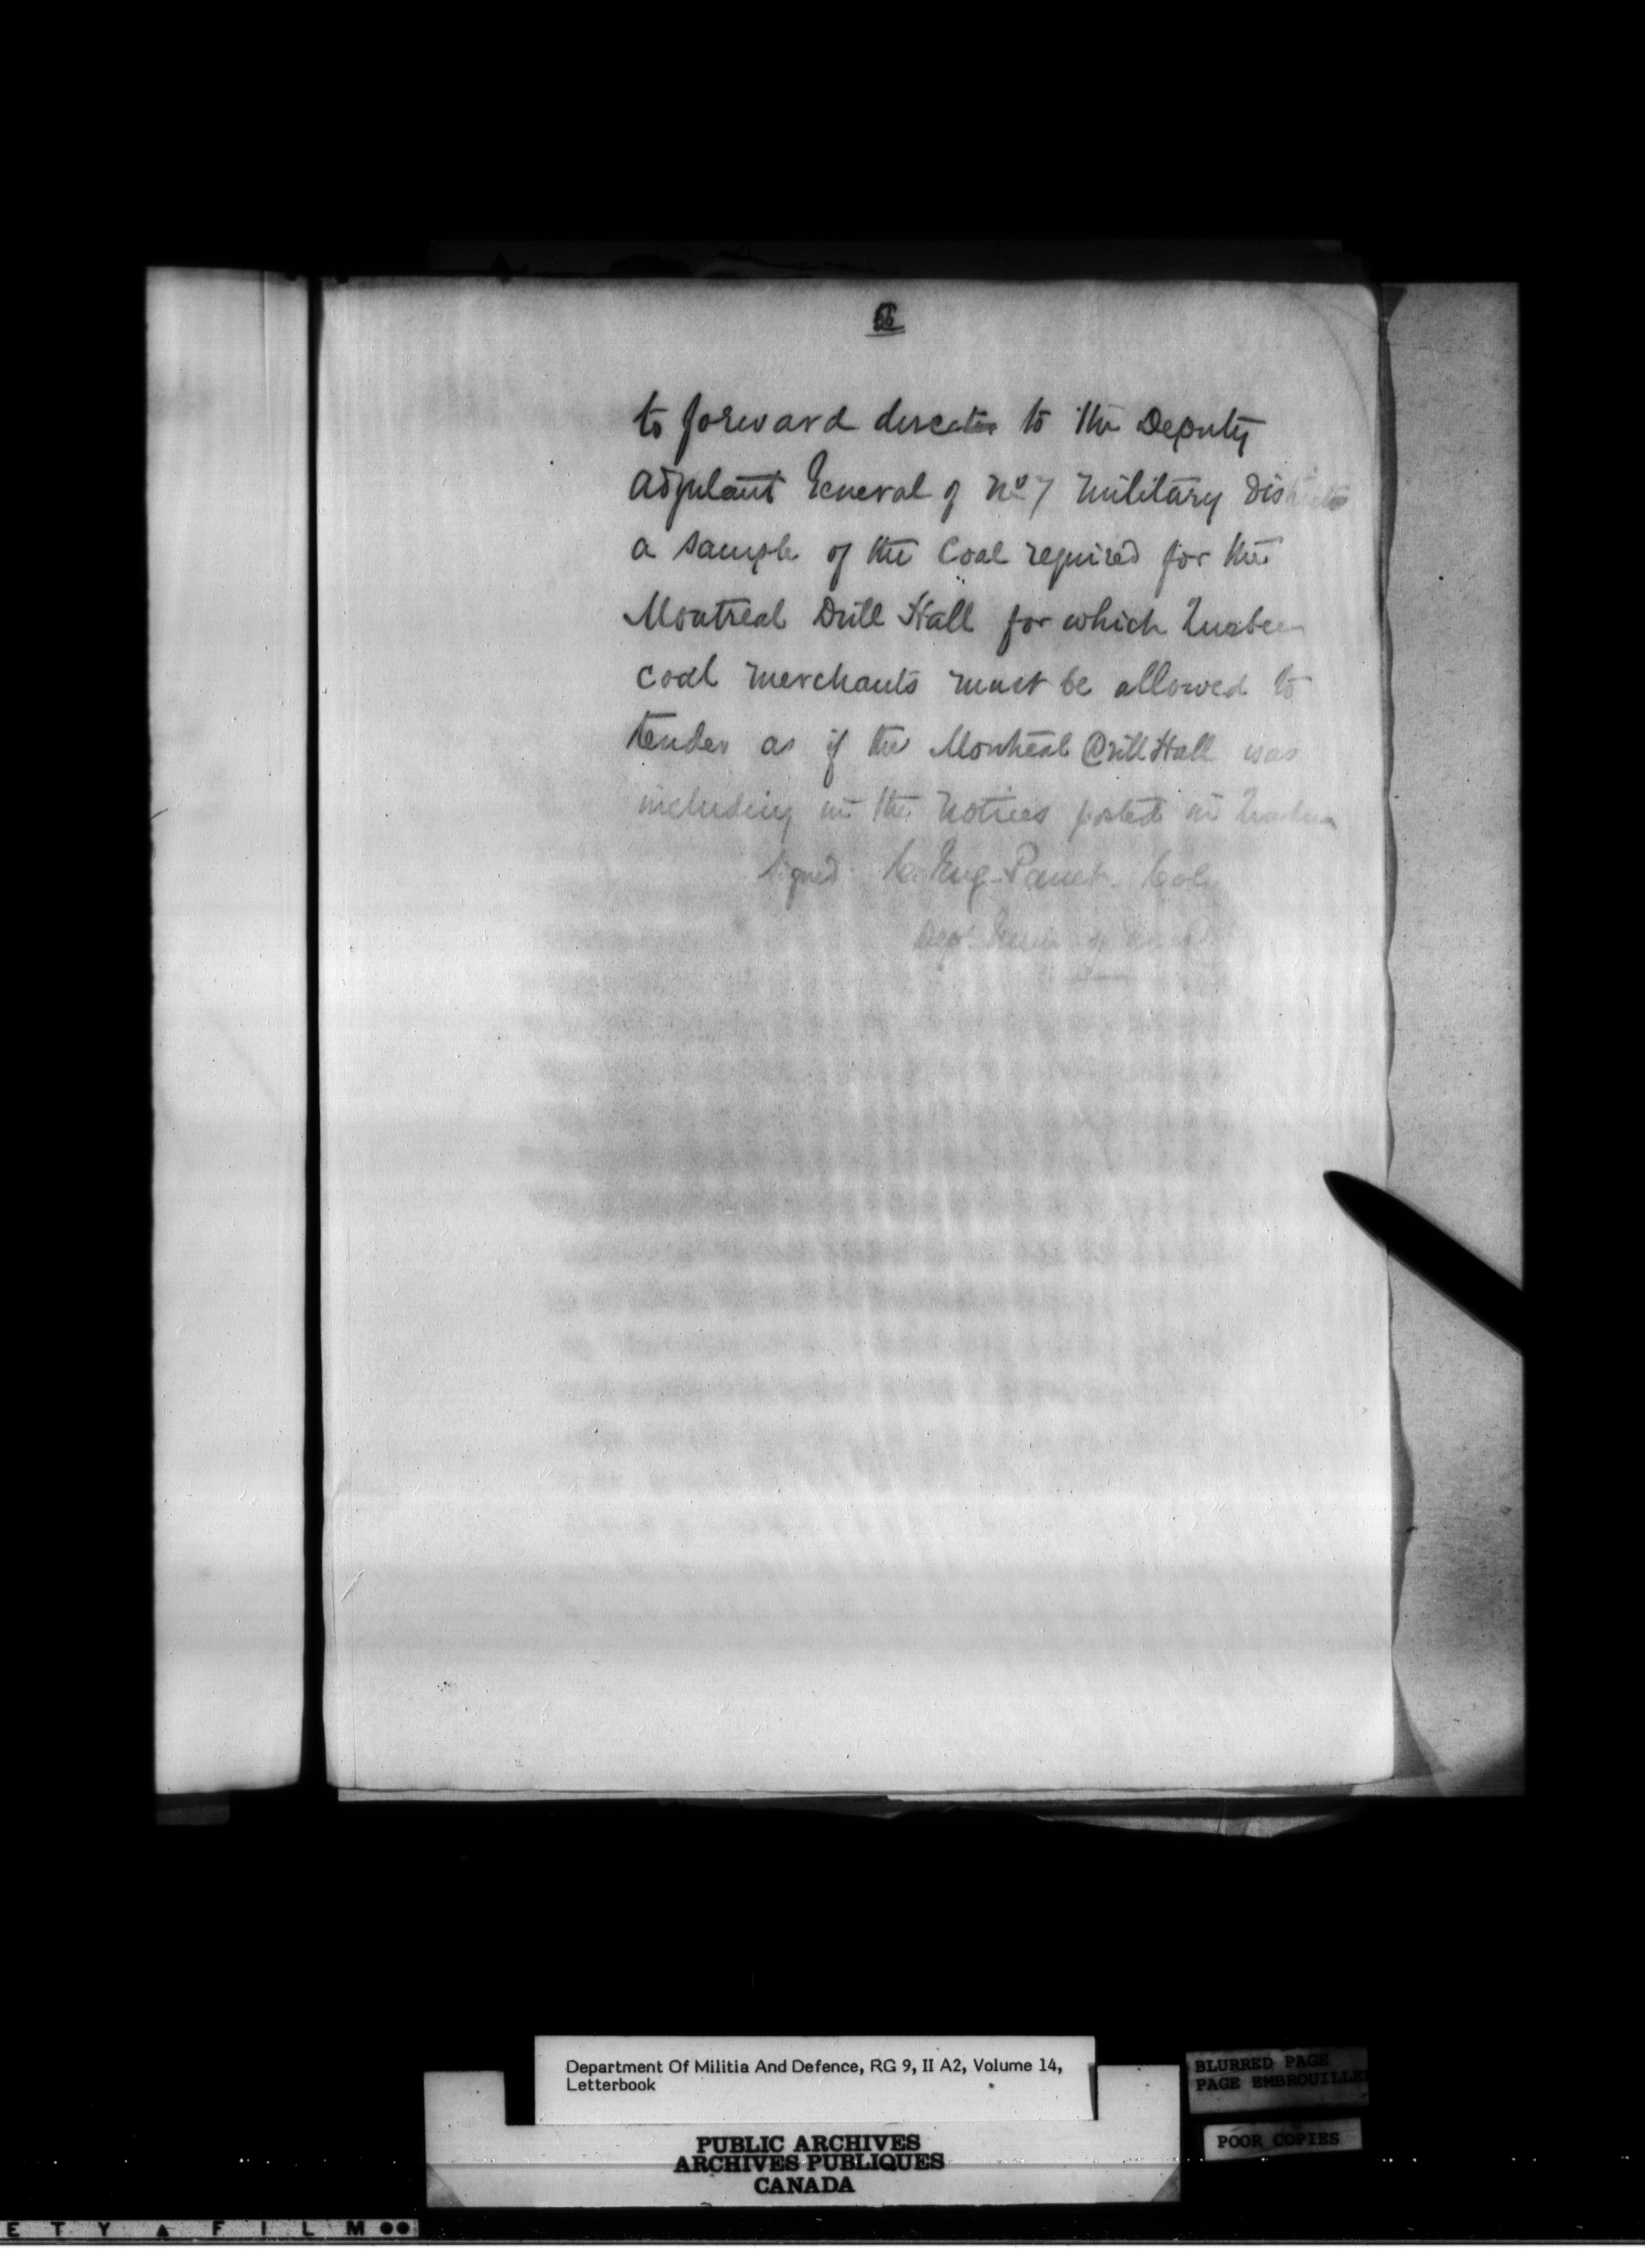 to forward direct to the Deputy
Adjutant General of No 7 Military District
a sample of the Coal required for the
Montreal Drill Hall for which Quebec
coal merchants must be allowed to
tender as if the Montreal Drill Hall was
including in the notices posted in Quebec
signed C. Eug. Panet Col
Dep. of
Department Of Militia And Defence, RG 9, II A2, Volume 14,
Letterbook
BLURRED PAGE
PAGE EMBROUILLE
POOR COPIES
PUBLIC ARCHIVES
ARCHIVES PUBLIQUES
CANADA
E T Y ▲ F I L M ●●